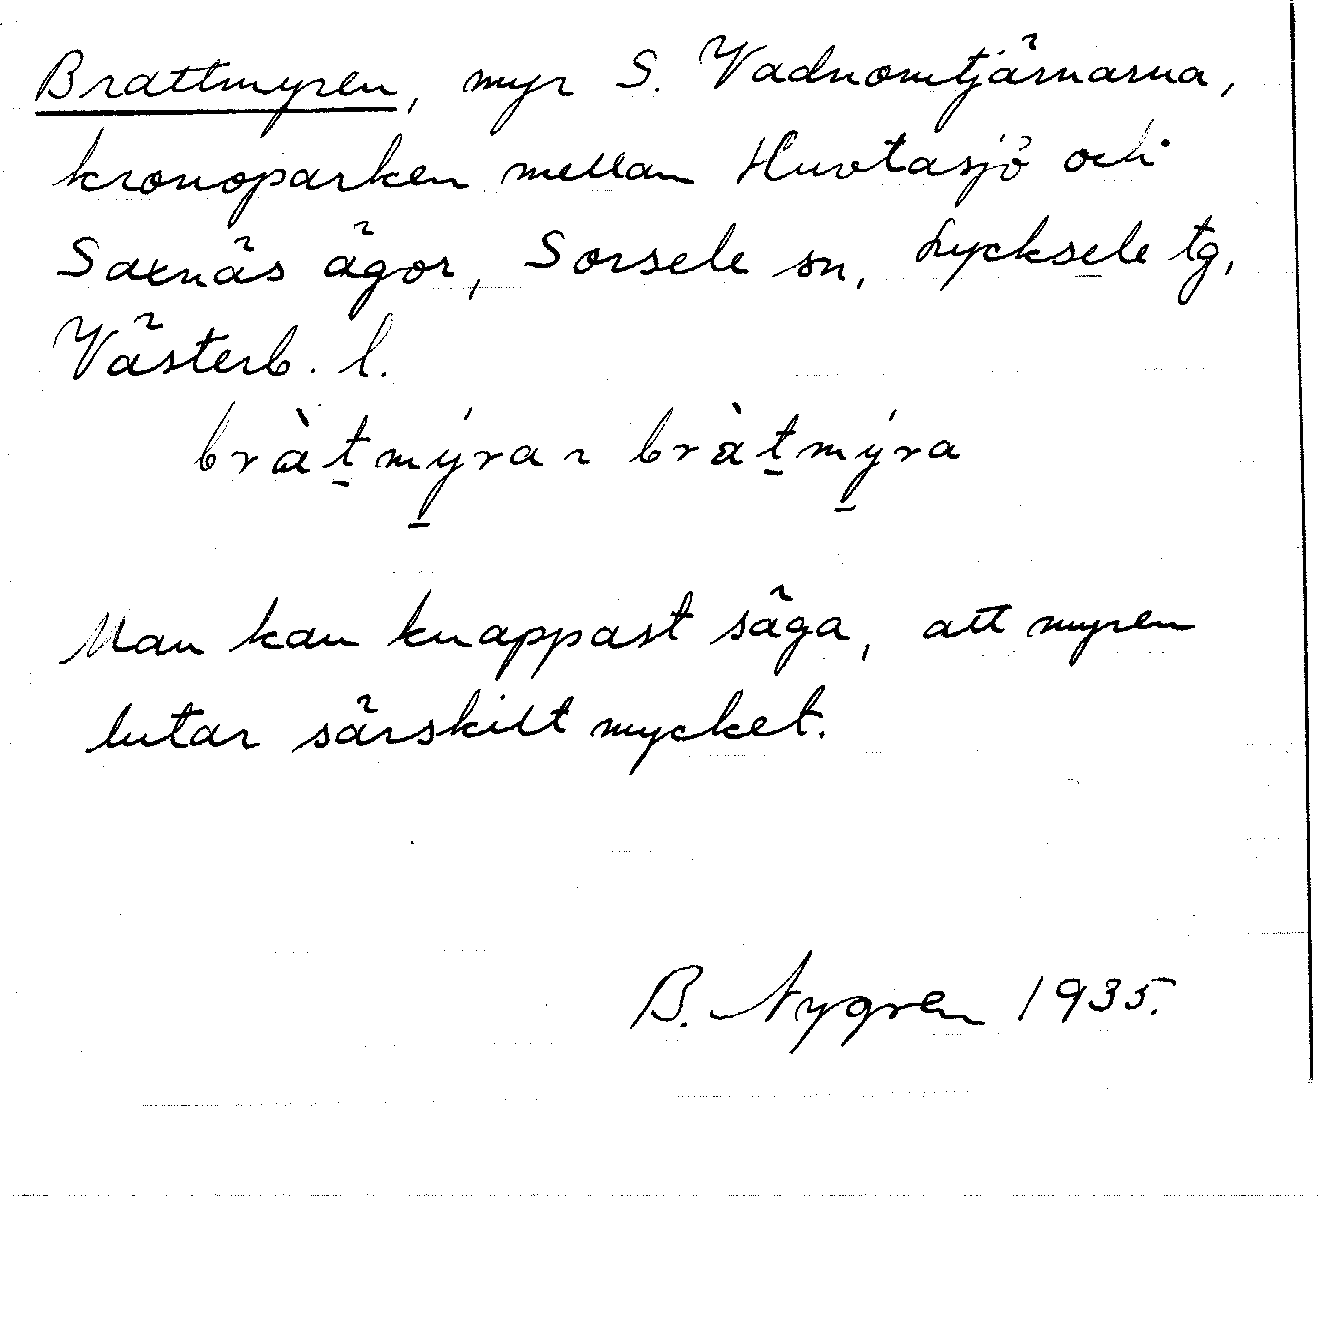 Brattmyren, myr S. Vadnomtjärnarna,
kronoparken mellan Huvtasjö och
Saxnäs ägor, Sorsele sn, Lycksele tg,
Västerb. l.
bràt̠mý̠ra ~ bràt̠mý̠ra
Man kan knappast säga, att myren
lutar särskilt mycket.
B. Nygren 1935.